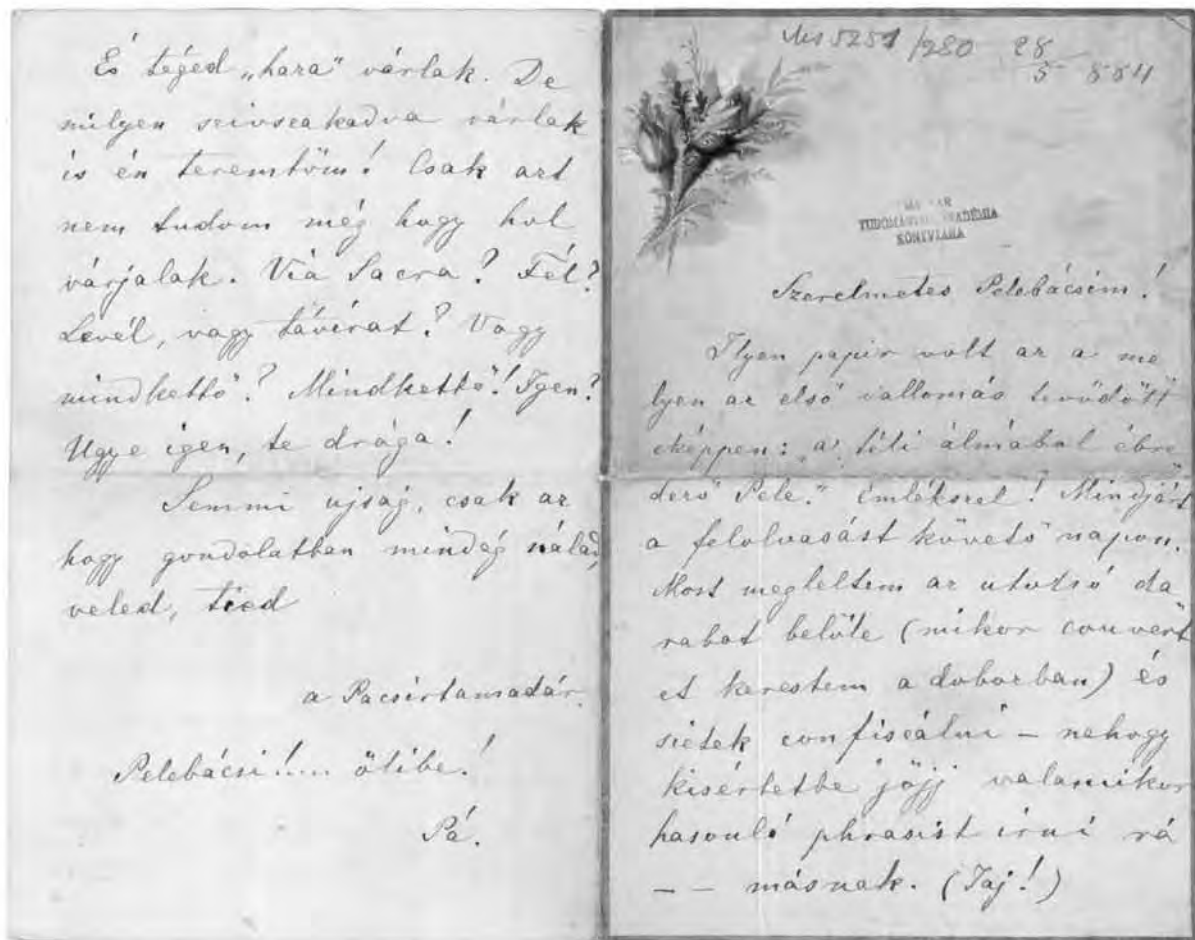 És téged „haza” várlak. De
milyen szivszakadva várlak
is én teremtöm! Csak azt
nem tudom még hogy hol
várjalak. Via Sacra? Fél?
Levél, vagy távirat? Vagy
mindkettő? Mindkettő! Igen?
Ugye igen, te drága!
Semmi ujság, csak az
hogy gondolatban mindég nálad,
veled, tied
a Pacsirtamadár.
Pelebácsi!.... ölibe!
Pá.
Ms 5251/280 28
5 884
MAGYAR
TUDOMÁNYOS AKADÉMIA
KÖNYVTÁRA
Szerelmetes Pelebácsim!
Ilyen papir volt az a me
lyen az első vallomás
eképpen: „a téli álmából ébre
dező Pele.” Emlékszel! Mindjárt
a felolvasást követő napon.
Most megleltem az utolsó da
rabot belőle (mikor convert
et kerestem a dobozban) és
sietek confiscálni – nehogy
kisértetbe jőjj valamikor
hasonló phrasist irni rá
– – másnak. (Jaj!)